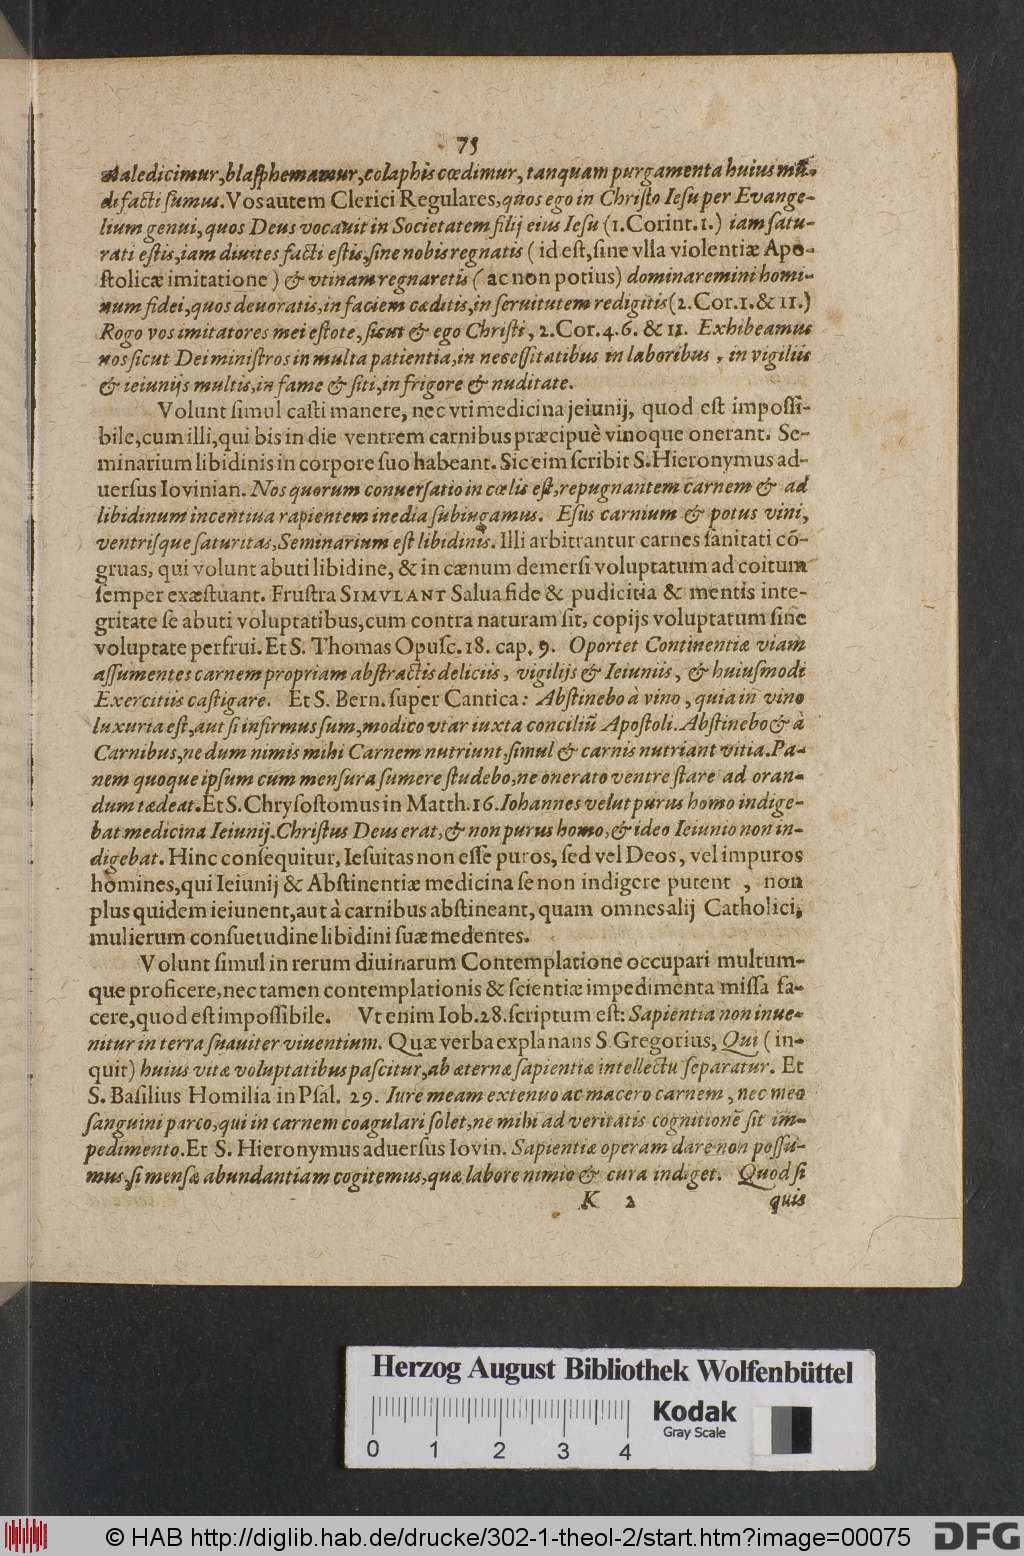 75
Maledicimur,blasphemamur,colaphis cœdimur, tanquam purgamenta huius mũ-
di facti sumus. Vos autem Clerici Regulares, quos ego in Christo Iesu per Evange-
lium genui, quos Deus vocauit in Societatem filij eius Iesu (1.Corint.1.) iam satu-
rati estis, iam diuites facti estis, sine nobis regnatis ( id est, sine vlla violentiæ Apo-
stolicæ imitatione ) & vtinam regnaretis ( ac non potius) dominaremini homi-
num fidei, quos deuoratis, in faciem cæditis, in seruitutem redigitis (2.Cor.1.& 11.)
Rogo vos imitatores mei estote, sicut & ego Christi, 2.Cor.4.6. & 11. Exhibeamus
nos sicut Dei ministros in multa patientia, in necessitatibus in laboribus, in vigiliis
& ieiuniis multis, in fame & siti, in frigore & nuditate.
Volunt simul casti manere, nec vti medicina jeiunij, quod est impossi-
bile, cum illi, qui bis in die ventrem carnibus præcipuè vinoque onerant. Se-
minarium libidinis in corpore suo habeant. Sic eim scribit S.Hieronymus ad-
uersus Iovinian. Nos quorum conuersatio in cœlis est, repugnantem carnem & ad
libidinum incentiua rapientem inedia subiugamus. Esus carnium & potus vini,
ventrisque saturitas, Seminarium est libidinis. Illi arbitrantur carnes sanitati cõ-
gruas, qui volunt abuti libidine, & in cænum demersi voluptatum ad coitum
semper exæstuant. Frustra SIMVLANT Salua fide & pudicitia & mentis inte-
gritate se abuti voluptatibus, cum contra naturam sit, copijs voluptatum sine
voluptate perfrui. Et S. Thomas Opusc. 18. cap. 9. Oportet Continentiæ viam
assumentes carnem propriam abstractis deliciis, vigilijs & Ieiuniis, & huiusmodi
Exercitiis castigare. Et S. Bern. super Cantica: Abstinebo à vino, quia in vino
luxuria est, aut si infirmus sum, modico vtar iuxta conciliũ Apostoli. Abstinebo & à
Carnibus, ne dum nimis mihi Carnem nutriunt, simul & carnis nutriant vitia. Pa-
nem quoque ipsum cum mensura sumere studebo, ne onerato ventre stare ad oran-
dum tædeat. Et S. Chrysostomus in Matth.16. Iohannes velut purus homo indige-
bat medicina Ieiunij. Christus Deus erat, & non purus homo, & ideo Ieiunio non in-
digebat. Hinc consequitur, Iesuitas non esse puros, sed vel Deos, vel impuros
homines, qui Ieiunij & Abstinentiæ medicina se non indigere putent , non
plus quidem ieiunent, aut à carnibus abstineant, quam omnes alij Catholici,
mulierum consuetudine libidini suæ medentes.
Volunt simul in rerum diuinarum Contemplatione occupari multum-
que proficere, nec tamen contemplationis & scientiæ impedimenta missa fa-
cere, quod est impossibile. Vt enim Iob.28. scriptum est: Sapientia non inue-
nitur in terra suauiter viuentium. Quæ verba explanans S. Gregorius, Qui ( in-
quit) huius vitæ voluptatibus pascitur, ab æternæ sapientiæ intellectu separatur. Et
S. Basilius Homilia in Psal. 29. Iure meam extenuo ac macero carnem, nec meo
sanguini parco, qui in carnem coagulari solet, ne mihi ad veritatis cognitionẽ sit im-
pedimento. Et S. Hieronymus aduersus Iovin. Sapientiæ operam dare non possu-
mus, si mensæ abundantiam cogitemus, quæ labore nimio & cura indiget. Quod si
K 2 quis
Herzog August Bibliothek Wolfenbüttel
0 1 2 3 4
Kodak
Gray Scale
© HAB http://diglib.hab.de/drucke/302-1-theol-2/start.htm?image=00075
DFG